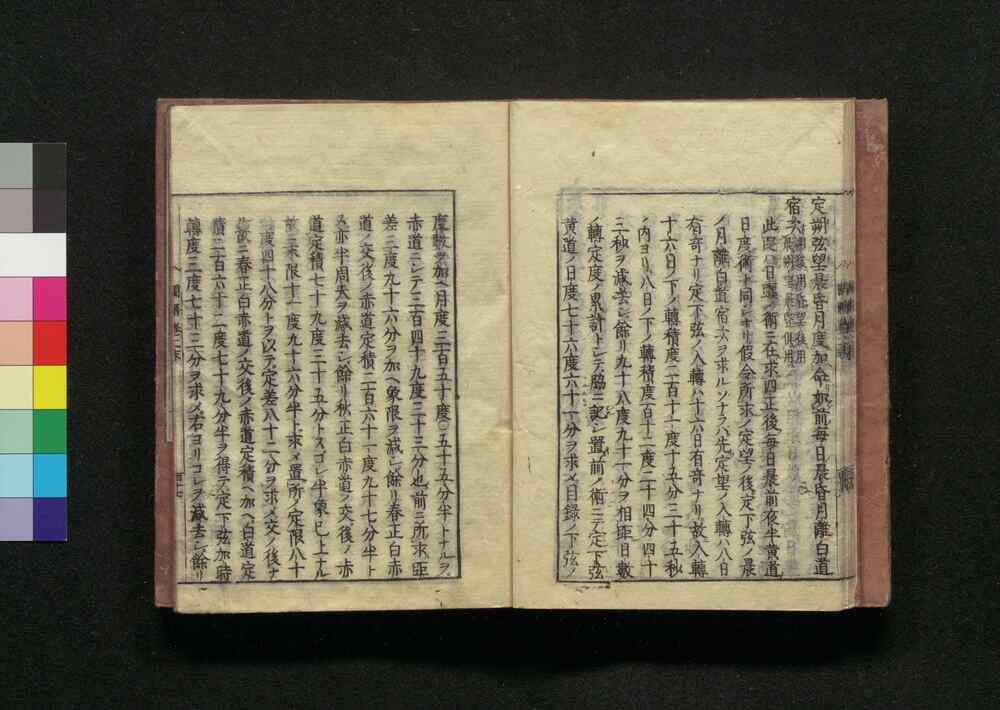 定朔弦望晨昏月度加命如前毎日晨昏月離白道
宿次
此段ハ日躔ノ術ニ在求四正後毎日晨前夜半黄道
日度術ト同シキナリ假令所求ノ定望ノ後定下弦ノ晨
ノ月離白道宿次ヲ求ルソナラハ先定望ノ入轉ハ八日
有奇ナリ定下弦ノ入轉ハ十六日有奇ナリ故入轉
十六日ノ下ノ轉積度二百十一度十五分三十五秒
ノ内ヨリ八日ノ下ノ轉積度百十二度二十四分四十
三秒ヲ減去シ餘リ九十八度九十一分ヲ相距日數
ノ轉定度ノ累計トシテ脇ニ記シ置前ノ術ニテ定下弦
黄道ノ日度七十六度六十一分ヲ求メ目録ノ下弦ノ
度數ヲ加ヘ月度三百五十度〇五十五分半トナルヲ
赤道ニシテ三百四十九度二十三分也前ニ所求距
差三度九十六分ヲ加ヘ象限ヲ減シ餘リ春正白赤
道ノ交後ノ赤道定積二百六十一度九十七分半ト
又亦半周天ヲ減去シ餘リ秋正白赤道ノ交後ノ赤
道定積七十九度三十五分トスコレ半象已上ナル
故ニ末限十一度九十六分半ヲ求メ置所ノ定限八十
度四十八分トヲ以テ定差八十二分ヲ求メ交ノ後ナ
故ニ春正白赤道ノ交後ノ赤道定積ヘ加ヘ白道定
積二百六十二度七十九分半ヲ得テ定下弦加時
轉度三度七十三分ヲ求メ右ヨリコレヲ減去シ餘リ